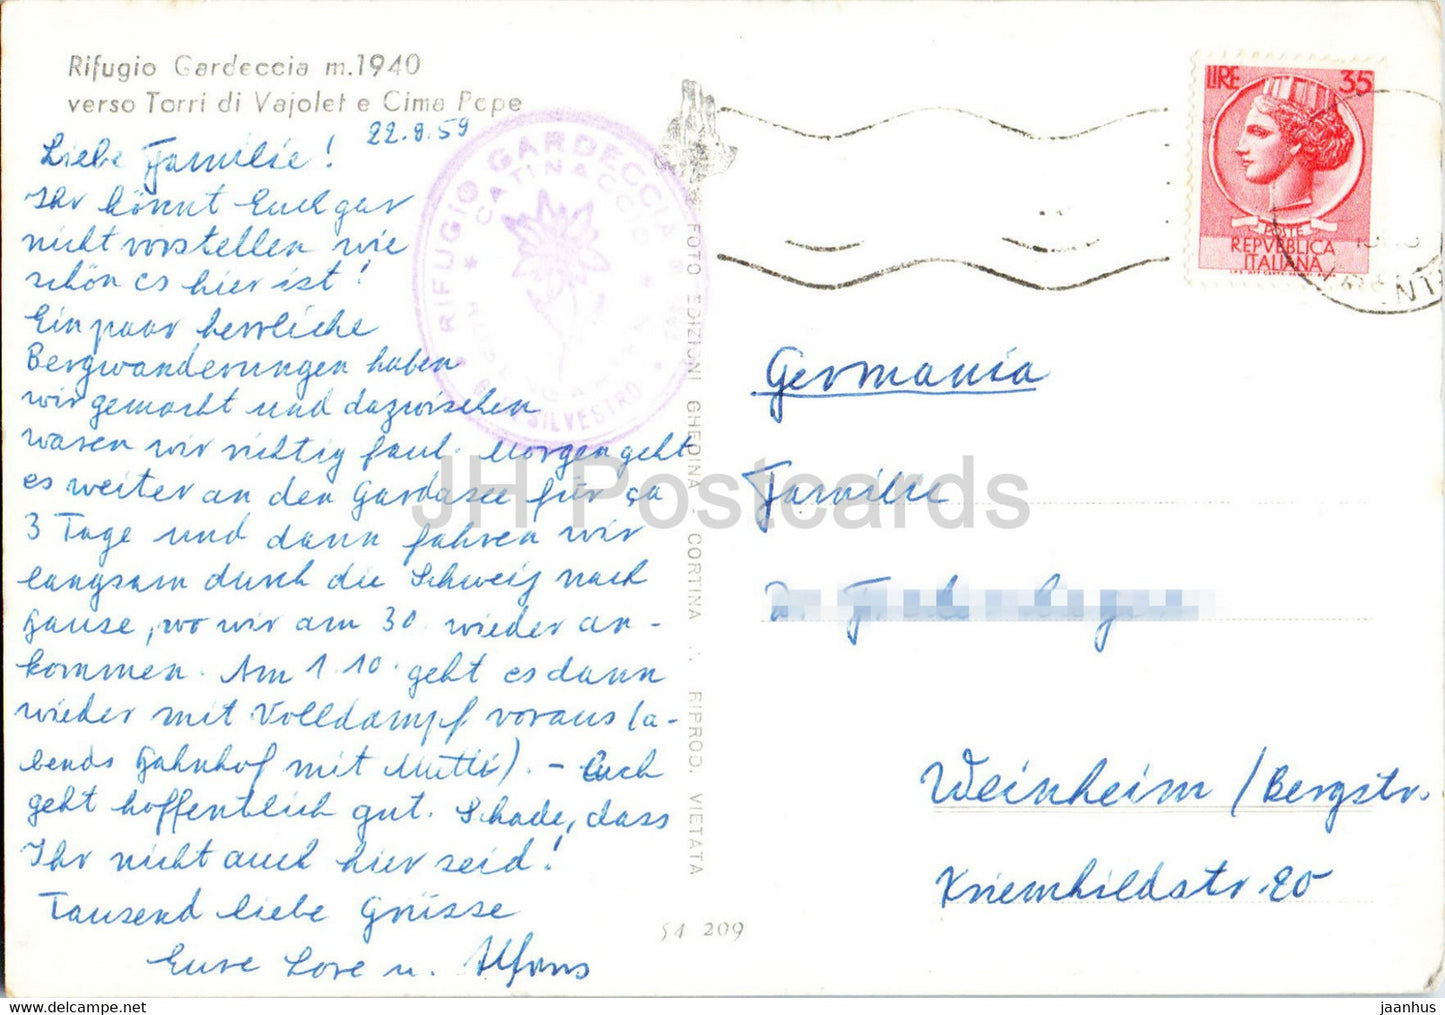 Rifugio Gardeccia m.1940
verso Torri di Vajolet e Cima Pope
22.9.59
Liebe Familie!
Ihr könnt Euch gar
nicht vorstellen wie
schön es hier ist!
Ein paar herrliche
Bergwanderungen haben
wir gemacht und dazwischen
waren wir richtig faul. Morgen geht
es weiter an den Gardasee für ca
3 Tage und dann fahren wir
langsam durch die Schweiz nach
Hause, wo wir am 30. wieder an-
kommen. Am 1.10. geht es dann
wieder mit Volldampf voraus (a-
bends Bahnhof mit Mutti). - Euch
geht hoffentlich gut. Schade, dass
Ihr nicht auch hier seid!
Tausend liebe Grüsse
Eure Lore u. Alfons
RIFUGIO GARDECCIA
CATINACCIO
SILVESTRO
FOTO EDIZIONI GHEDINA - CORTINA ∴ RIPROD. VIETATA
54 209
LIRE 35
POSTE
REPVBBLICA
ITALIANA
Germania
Familie
Weinheim / Bergstr.
Kriemhildstr. 20
JH Postcards
jaanhus